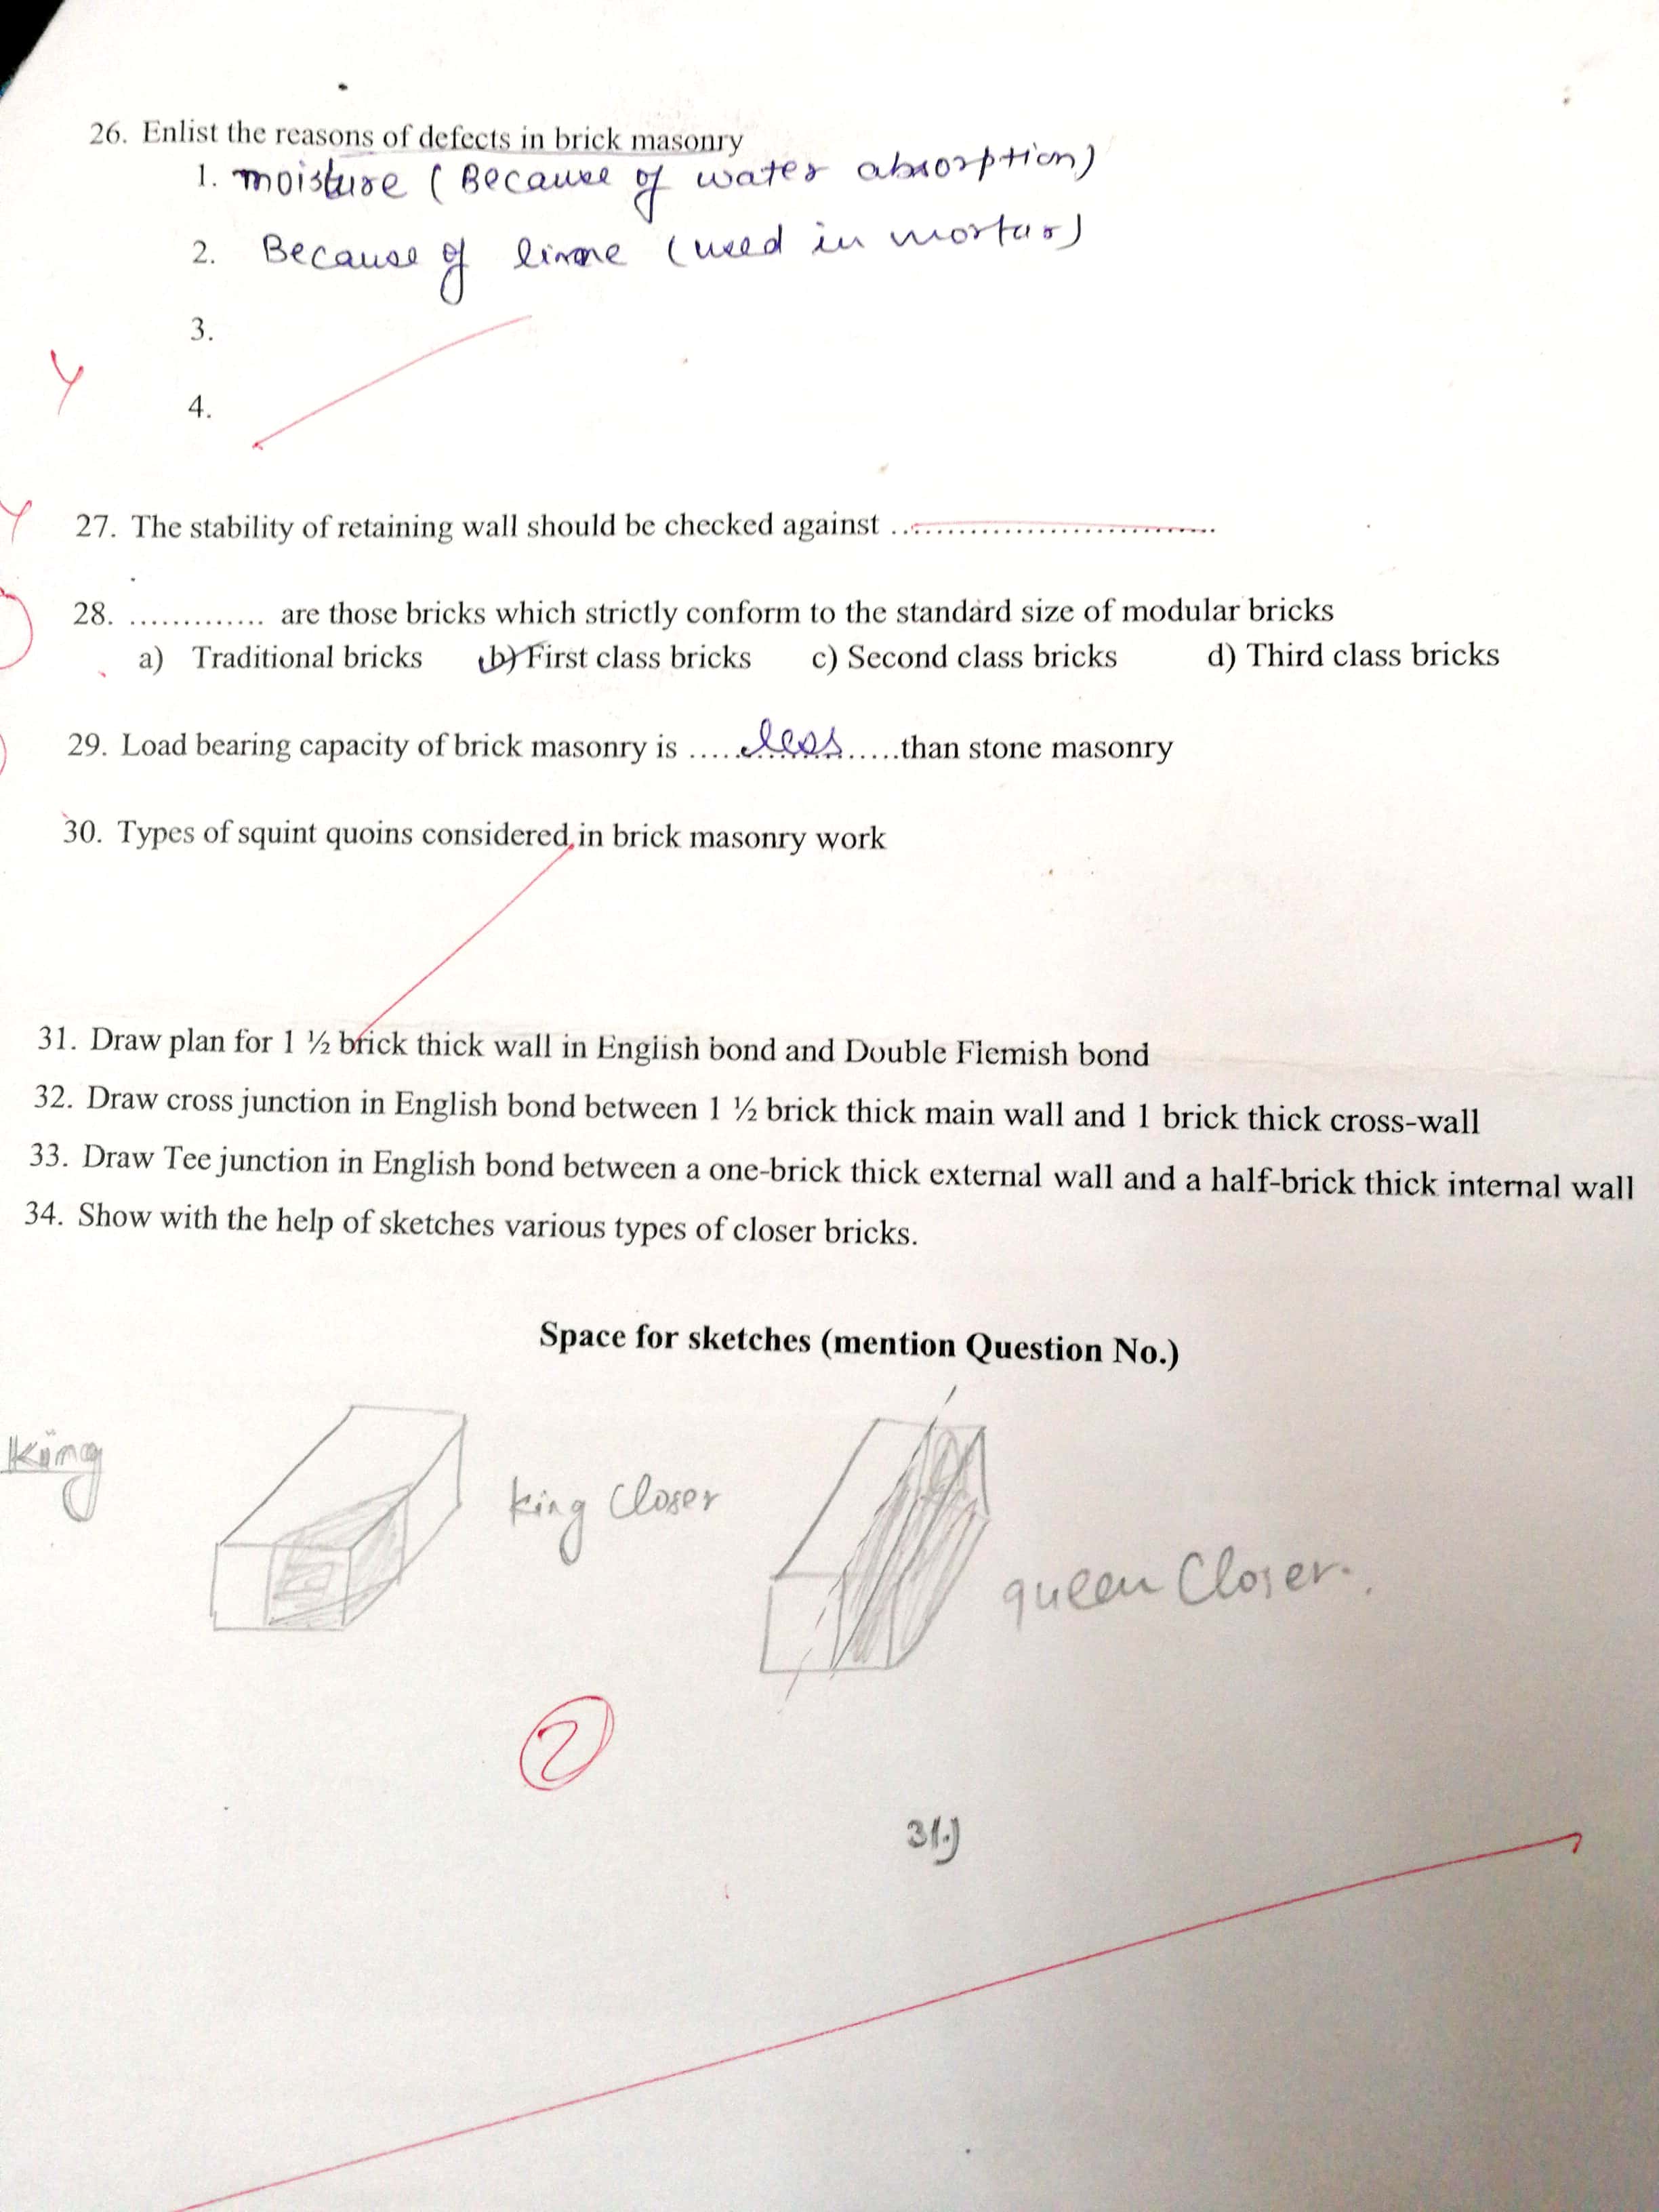 26. Enlist the reasons of defects in brick masonry
1. moisture (Because of water absorption)
2. Because of lime (used in mortar)
3.
4.
27. The stability of retaining wall should be checked against ................................
28. ............. are those bricks which strictly conform to the standard size of modular bricks
a) Traditional bricks b) First class bricks c) Second class bricks d) Third class bricks
29. Load bearing capacity of brick masonry is .....less.....than stone masonry
30. Types of squint quoins considered in brick masonry work
31. Draw plan for 1 ½ brick thick wall in English bond and Double Flemish bond
32. Draw cross junction in English bond between 1 ½ brick thick main wall and 1 brick thick cross-wall
33. Draw Tee junction in English bond between a one-brick thick external wall and a half-brick thick internal wall
34. Show with the help of sketches various types of closer bricks.
Space for sketches (mention Question No.)
King
king Closer
queen Closer.
2
31.)